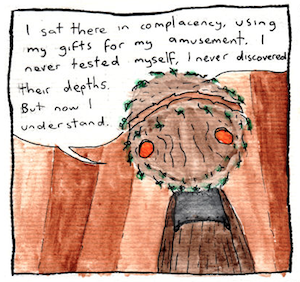 I sat there in complacency, using
my gifts for my amusement. I
never tested myself, I never discovered
their depths.
But now I
understand.